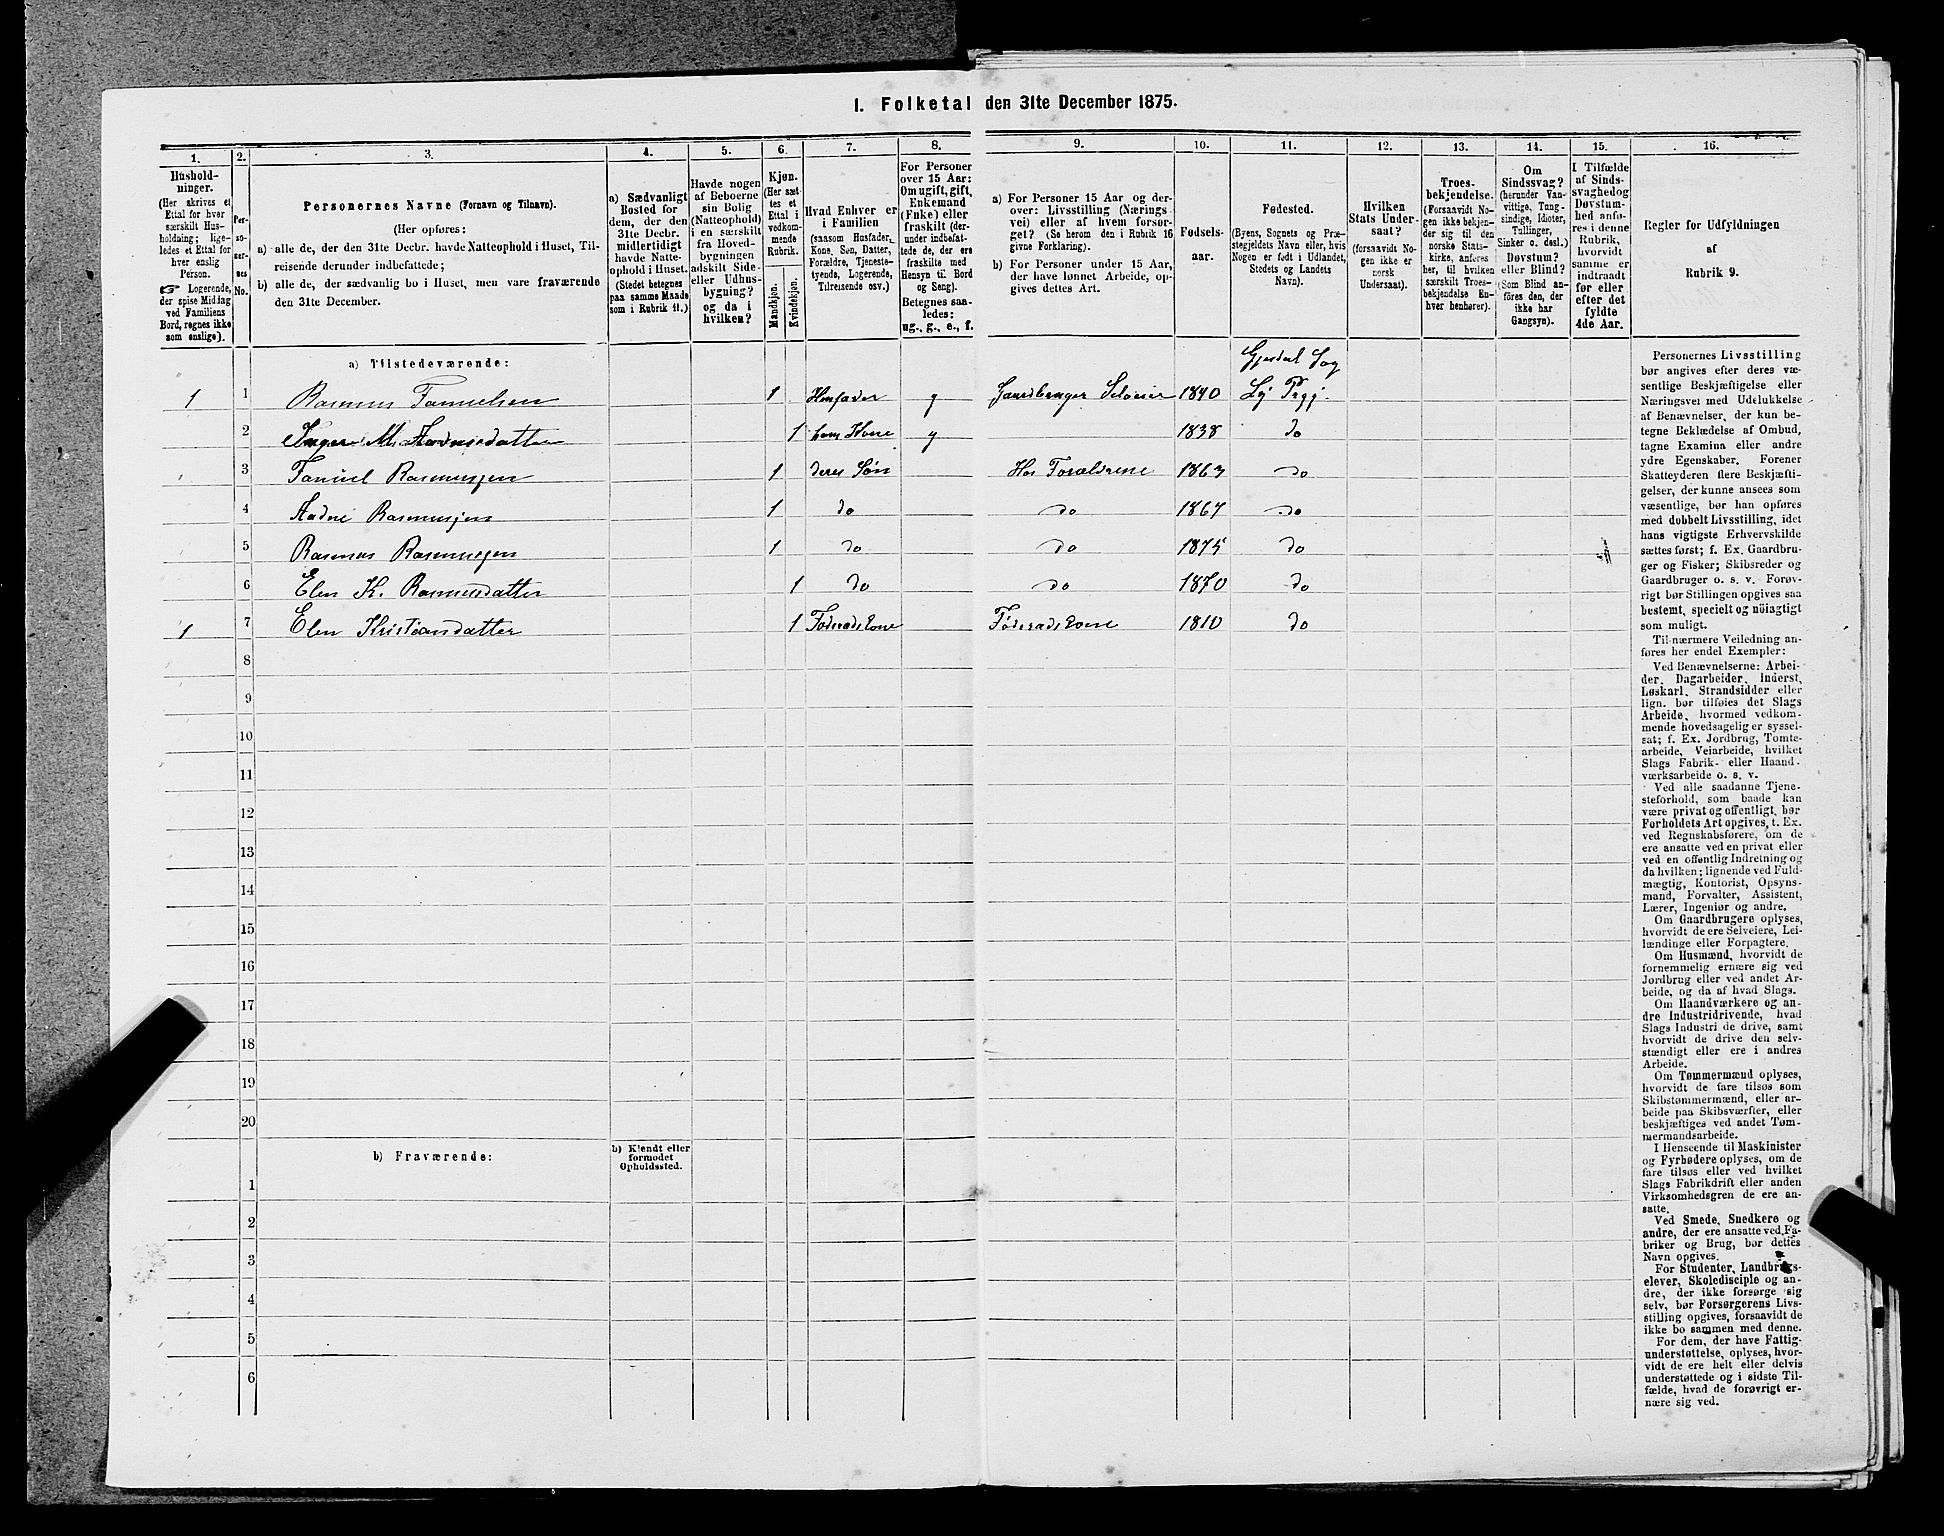 1. Folketal den 31te December 1875.
1. 2. 3. 4. 5. 6. 7. 8. 9. 10. 11. 12. 13. 14. 15. 16.
Hushold-
ninger.
(Her skrives et
Ettal for hver
særskilt Hus-
holdning; lige-
ledes et Ettal for
hver enslig
Person.
☞ Logerende,
der spise Middag
ved Familiens
Bord, regnes ikke
som enslige).
Per-
so-
ner-
nes
No.
Personernes Navne (Fornavn og Tilnavn).
(Her opføres:
a) alle de, der den 31te Decbr. havde Natteophold i Huset, Til-
reisende derunder indbefattede;
b) alle de, der sædvanlig bo i Huset, men vare fraværende
den 31te December.
a) Sædvanligt
Bosted for
dem, der den
31te Decbr.
midlertidigt
havde Natte-
ophold i Huset.
(Stedet betegnes
paa samme Maade
som i Rubrik 11.)
Havde nogen
af Beboerne
sin Bolig
(Natteophold)
i en særskilt
fra Hoved-
bygningen
adskilt Side-
eller Udhus-
bygning?
og da i
hvilken?
Kjøn.
(Her sæt-
tes et
Ettal i
vedkom-
mende
Rubrik.
Mandkjøn.
Kvindekjøn.
Hvad Enhver er
i Familien
(saasom Husfader,
Kone, Søn, Datter,
Forældre, Tjeneste-
tyende, Logerende,
Tilreisende osv.)
For Personer
over 15 Aar:
Om ugift, gift,
Enkemand
(Enke) eller
fraskilt (der-
under indbefat-
tede de, der ere
fraskilte med
Hensyn til Bord
og Seng).
Betegnes saa-
ledes:
ug., g., e., f.
a) For Personer 15 Aar og der-
over: Livsstilling (Nærings
vei) eller af hvem forsør-
get? (Se herom den i Rubrik 16
givne Forklaring).
b) For Personer under 15 Aar,
der have lønnet Arbeide, op-
gives dettes Art.
Fødsels-
aar.
Fødested.
(Byens, Sognets og Præ-
stegjeldets Navn eller, hvis
Nogen er født i Udlandet,
Stedets og Landets
Navn).
Hvilken
Stats Under-
saat?
(forsaavidt No-
gen ikke er
norsk
Undersaat).
Troes-
bekjendelse.
(Forsaavidt No-
gen ikke bekjen-
der sig til den
norske Stats-
kirke, anføres
her, til hvilken
særskilt Troes-
bekjendelse En-
hver henhører).
Om
Sindssvag?
(herunder Van-
vittige, Tung-
sindige, Idioter,
Tullinger,
Sinker o. desl.)
Døvstum?
eller Blind?
(Som Blind an-
føres den, der
ikke har
Gangsyn).
I Tilfælde
af Sinds-
svaghed og
Døvstum-
hed anfø-
res i denne
Rubrik,
hvorvidt
samme er
indtraadt
før eller
efter det
fyldte
4de Aar.
Regler for Udfyldningen
af
Rubrik 9.
a) Tilstedeværende:
Gjesdal Sog
1 1 Rasmus Tanielsen 1 Husfader g Gaardbruger Selveier 1840 Ly Prgj.
2 Inger M. Aadnesdatter 1 hans Kone g 1838 do
3 Taniel Rasmussen 1 deres Søn Hos Forældrene 1863 do
4 Aadne Rasmussen 1 do do 1867 do
5 Rasmus Rasmussen 1 do do 1875 do
6 Elen K. Rasmusdatter 1 do do 1870 do
1 7 Elen Kristiansdatter 1 Føderads Kone Føderads Kone 1810 do
8
9
10
11
12
13
14
15
16
17
18
19
20
b) Fraværende:
b) Kjendt eller
formodet
Opholdssted.
1
2
3
4
5
6
Personernes Livsstilling
bør angives efter deres væ-
sentlige Beskjæftigelse eller
Næringsvei med Udelukkelse
af Benævnelser, der kun be-
tegne Beklædelse af Ombud,
tagne Examina eller andre
ydre Egenskaber. Forener
Skatteyderen flere Beskjæfti-
gelser, der kunne ansees som
væsentlige, bør han opføres
med dobbelt Livsstilling, idet
hans vigtigste Erhvervskilde
sættes først; f. Ex. Gaardbru-
ger og Fisker; Skibsreder og
Gaardbruger o. s. v. Forøv-
rigt bør Stillingen opgives saa
bestemt, specielt og nöiagtigt
som muligt.
Til nærmere Veiledning an-
føres her endel Exempler:
Ved Benævnelserne: Arbei-
der, Dagarbeider, Inderst,
Løskarl, Strandsidder eller
lign. bør tilføies det Slags
Arbeide, hvormed vedkom-
mende hovedsagelig er syssel-
sat; f. Ex. Jordbrug, Tomte-
arbeide, Veiarbeide, hvilket
Slags Fabrik- eller Haand-
værksarbeide o. s. v.
Ved alle saadanne Tjene-
steforhold, som baade kan
være privat og offentligt, bør
Forholdets Art opgives, t. Ex.
ved Regnskabsførere, om de
ere ansatte ved en privat eller
ved en offentlig Indretning og
da hvilken; lignende ved Fuld-
mægtig, Kontorist, Opsyns-
mand, Forvalter, Assistent,
Lærer, Ingeniør og andre.
Om Gaardbrugere oplyses,
hvorvidt de ere Selveiere, Lei-
lændinge eller Forpagtere.
Om Husmænd, hvorvidt de
fornemmelig ernære sig ved
Jordbrug eller ved andet Ar-
beide, og da af hvad Slags.
Om Haandværkere og an-
dre Industridrivende, hvad
Slags Industri de drive, samt
hvorvidt de drive den selv-
stændigt eller ere i andres
Arbeide.
Om Tømmermænd oplyses,
hvorvidt de fare tilsøs som
Skibstømmermænd, eller ar-
beide paa Skibsværfter, eller
beskjæftiges ved andet Tøm-
mermandsarbeide.
I Henseende til Maskinister
og Fyrbødere oplyses, om de
fare tilsøs eller ved hvilket
Slags Fabrikdrift eller anden
Virksomhedsgren de ere an-
satte.
Ved Smede, Snedkere og
andre, der ere ansatte ved Fa-
briker og Brug, bør dettes
Navn opgives.
For Studenter, Landbrugs-
elever, Skoledisciple og an-
dre, der ikke forsørge sig
selv, bør Forsørgerens Livs-
stilling opgives, forsaavidt de
ikke bo sammen med denne.
For dem, der have Fattig-
understøttelse, oplyses, hvor-
vidt de ere helt eller delvis
understøttede og i sidste Til-
fælde, hvad de forøvrigt er-
nære sig ved.